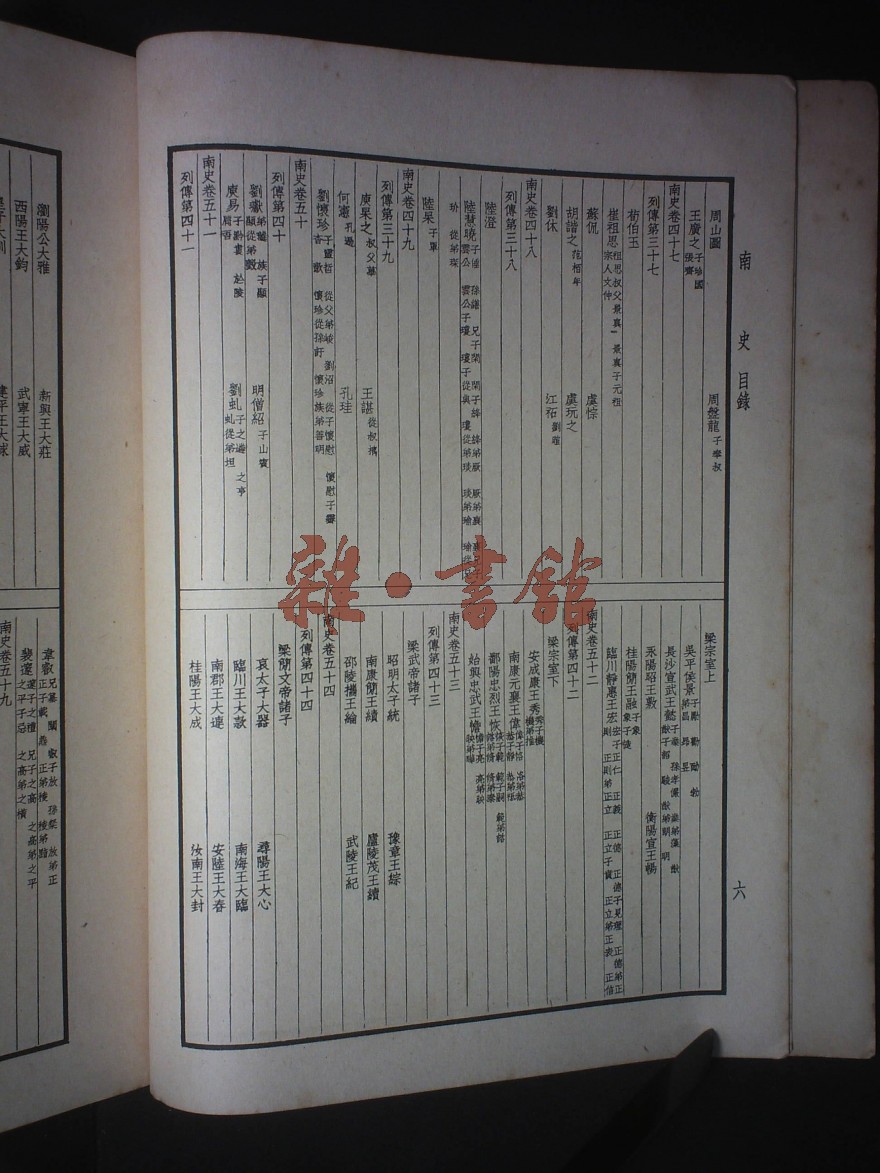 南史目錄
六
周山圖
周盤龍 子奉叔
王廣之 子珍國 張齊
南史卷四十七
列傳第三十七
荀伯玉
崔祖思 祖思叔父景真 景真子元祖 宗人文仲
蘇侃
虞悰
胡諧之 范栢年
虞玩之
劉休
江祏 劉暄
南史卷四十八
列傳第三十八
陸澄
陸慧曉
陸杲 子罩
南史卷四十九
列傳第三十九
庾杲之 叔父蓽
王諶 從叔摛
何憲 孔逷
孔珪
劉懷珍 子靈哲 從父弟峻 劉沼 從子懷慰 懷慰子霽 杳 歊 懷珍從孫訏 懷珍族弟善明
南史卷五十
列傳第四十
劉瓛 弟璡 族子顯 顯從弟瑴
明僧紹 子山賓
庾易 子黔婁 於陵 肩吾
劉虬 子之遴 之亨 虬從弟坦
南史卷五十一
列傳第四十一
梁宗室上
吳平侯景 子勵 勸 勔 勃 弟昌 昂 昱
長沙宣武王懿
衡陽宣王暢
永陽昭王敷
桂陽簡王融 子象
臨川靜惠王宏
南史卷五十二
列傳第四十二
梁宗室下
安成康王秀 秀子機 機弟推
南康元襄王偉
鄱陽忠烈王恢
始興忠武王憺
南史卷五十三
列傳第四十三
梁武帝諸子
昭明太子統
豫章王綜
南康簡王績
廬陵茂王續
邵陵攜王綸
武陵王紀
南史卷五十四
列傳第四十四
梁簡文帝諸子
哀太子大器
尋陽王大心
臨川王大款
南海王大臨
南郡王大連
安陸王大春
桂陽王大成
汝南王大封
瀏陽公大雅
新興王大莊
西陽王大鈞
武寧王大威
建平王大球
南史卷五十九
雜·書館